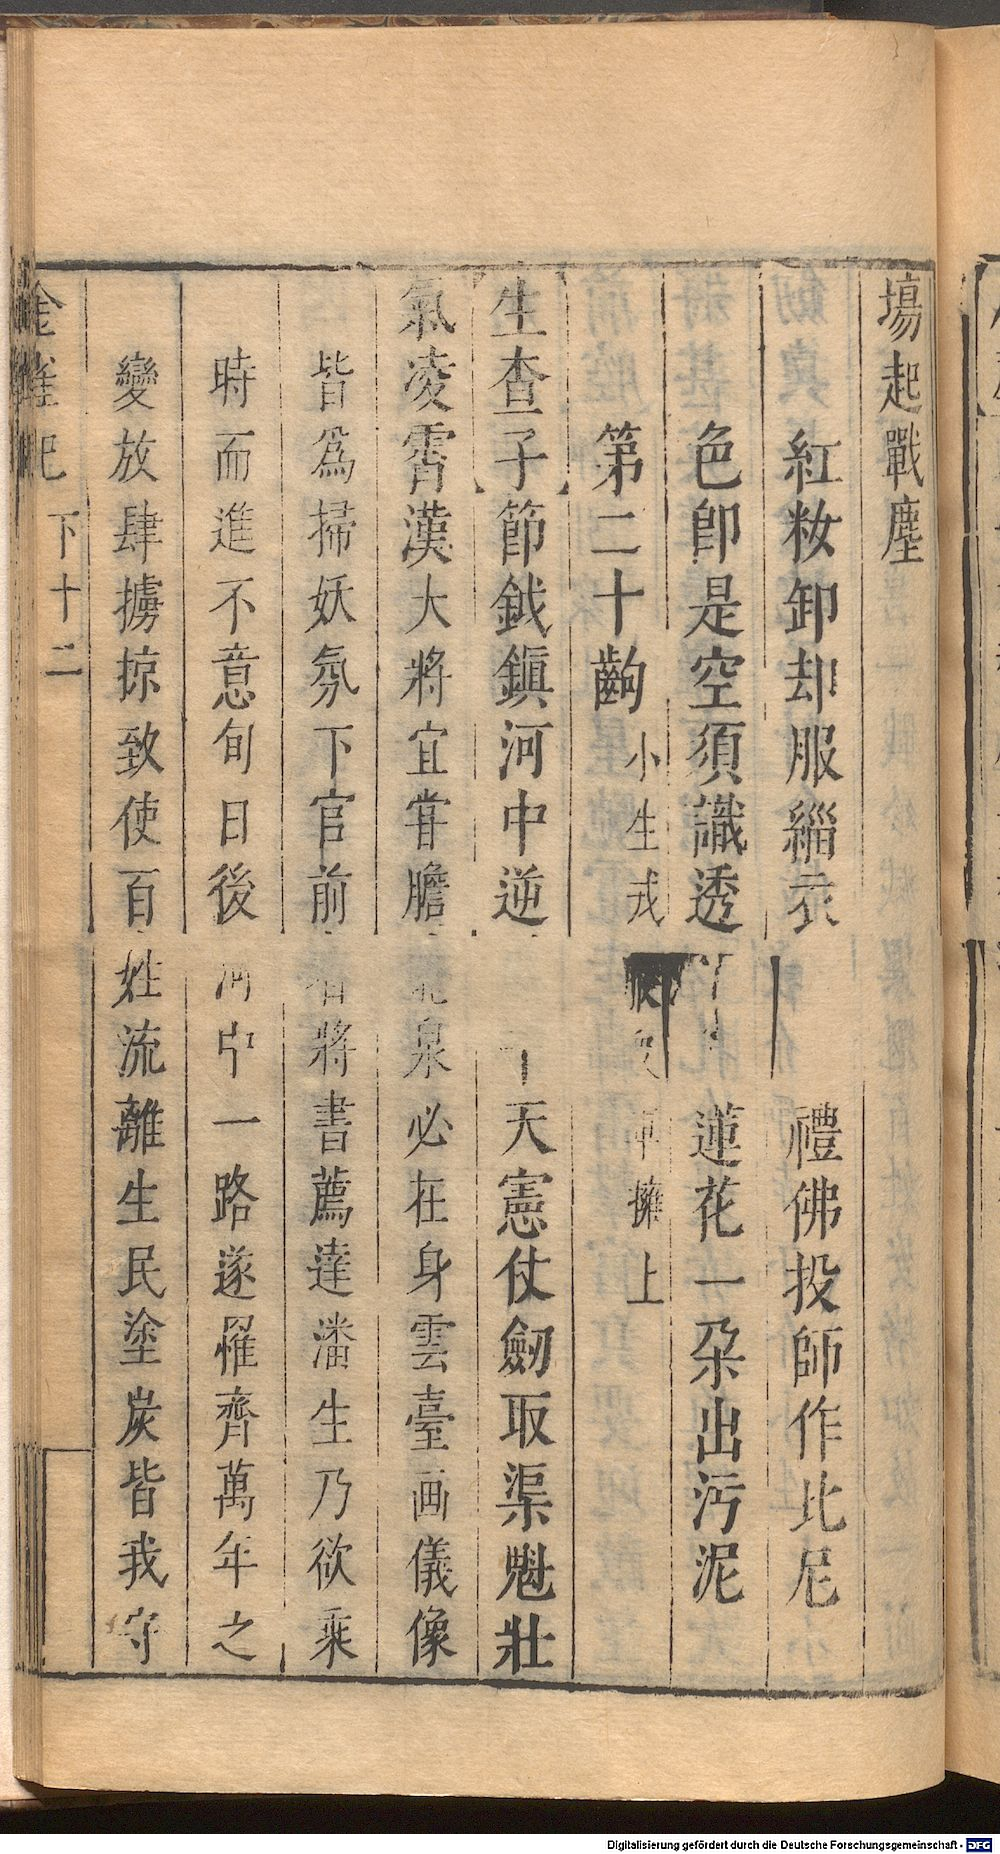 塲起戰塵
紅妝卸却服緇衣禮佛投師作比尼
色卽是空須識透蓮花一朶出污泥
第二十齣小生戎擁上
生查子節鉞鎮河中逆天憲仗劒取渠魁壯
氣凌霄漢大將宜甞膽泉必在身雲臺画儀像
皆爲掃妖氛下官前將書薦達潘生乃欲乘
時而進不意旬日後河中一路遂罹齊萬年之
變放肆擄掠致使百姓流離生民塗炭皆我守
金雀記
下十二
Digitalisierung gefördert durch die Deutsche Forschungsgemeinschaft - DFG